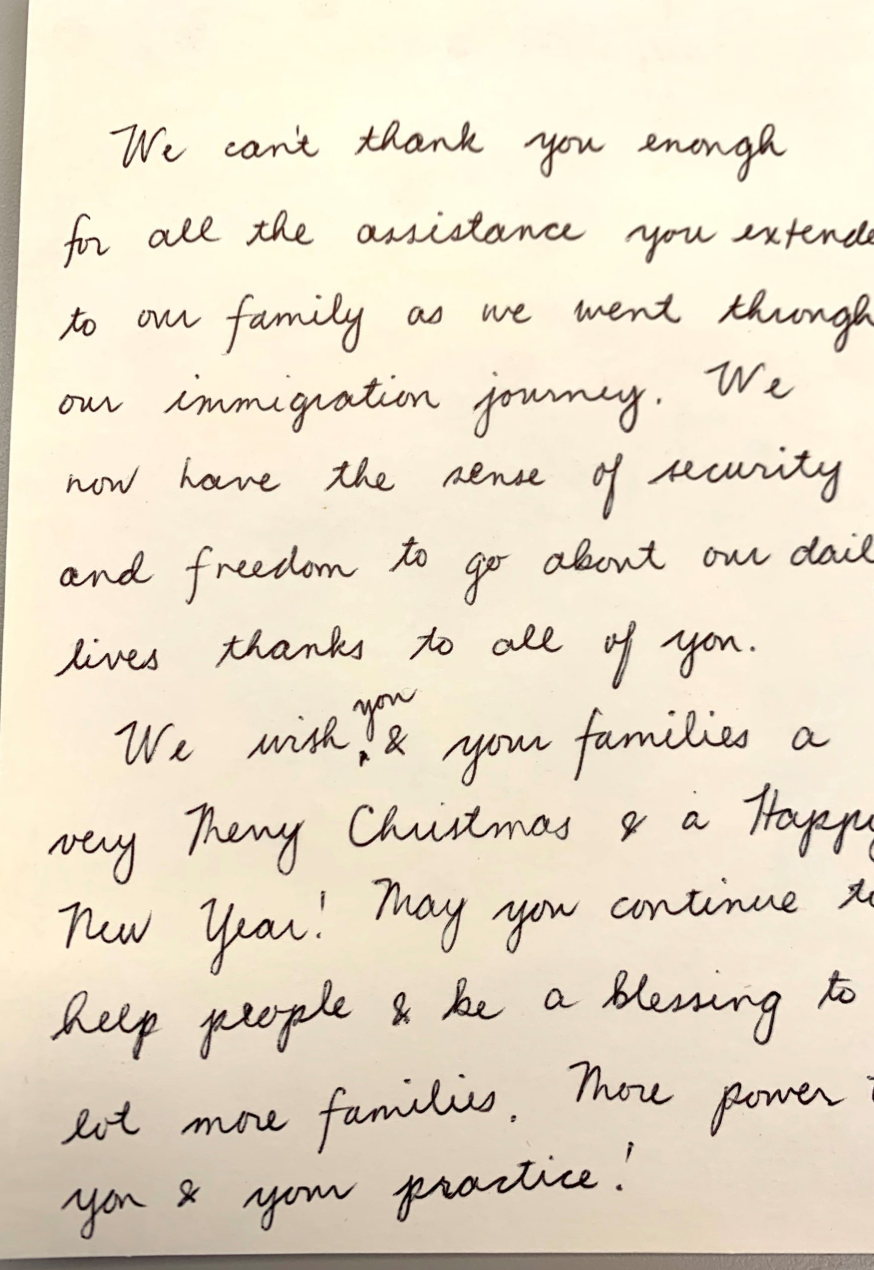 We can't thank you enough
for all the assistance you extende
to our family as we went through
our immigration journey. We
now have the sense of security
and freedom to go about our dail
lives thanks to all of you.
We wish you & your families a
very Merry Christmas & a Happy
New Year! May you continue to
help people & be a blessing to
lot more families. More power t
you & your practice!